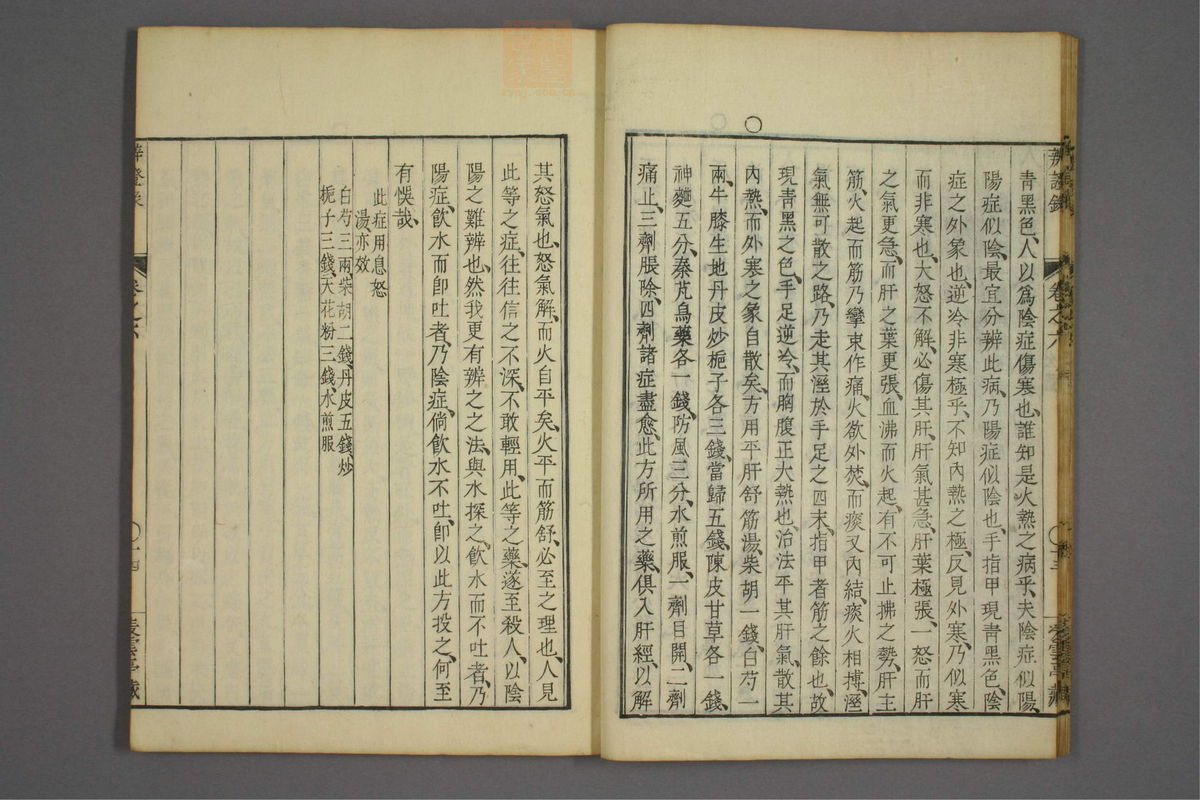 辨證錄 卷之六 〇十三
青黑色、人以爲陰症傷寒也、誰知是火熱之病乎、夫陰症似陽、
陽症似陰、最宜分辨此病、乃陽症似陰也、手指甲現靑黑色、陰
症之外象也、逆冷非寒極乎、不知內熱之極、反見外寒、乃似寒
而非寒也、大怒不解、必傷其肝、肝氣甚急、肝葉極張、一怒而肝
之氣更急、而肝之葉更張、血沸而火起、有不可止拂之勢、肝主
筋、火起而筋乃攣束作痛、火欲外焚、而痰又內結、痰火相搏、溼
氣無可散之路、乃走其溼於手足之四末、指甲者筋之餘也、故
現靑黑之色、手足逆冷、而胸腹正大熱也、治法平其肝氣、散其
內熱、而外寒之象自散矣、方用平肝舒筋湯、柴胡一錢、白芍一
兩、牛膝生地丹皮炒梔子各三錢、當歸五錢、陳皮甘草各一錢、
神麯五分、秦艽烏藥各一錢、防風三分、水煎服、一劑目開、二劑
痛止、三劑脹除、四劑諸症盡愈、此方所用之藥、俱入肝經、以解
其怒氣也、怒氣解、而火自平矣、火平而筋舒、必至之理也、人見
此等之症、往往信之不深、不敢輕用、此等之藥、遂至殺人、以陰
陽之難辨也、然我更有辨之之法、與水探之、飲水而不吐者、乃
陽症、飲水而卽吐者、乃陰症、倘飲水不吐、卽以此方投之、何至
有悞哉、
此症用息怒
湯亦效
白芍三兩、柴胡二錢、丹皮五錢、炒
梔子三錢、天花粉三錢、水煎服
辨證錄 卷之六 〇十四